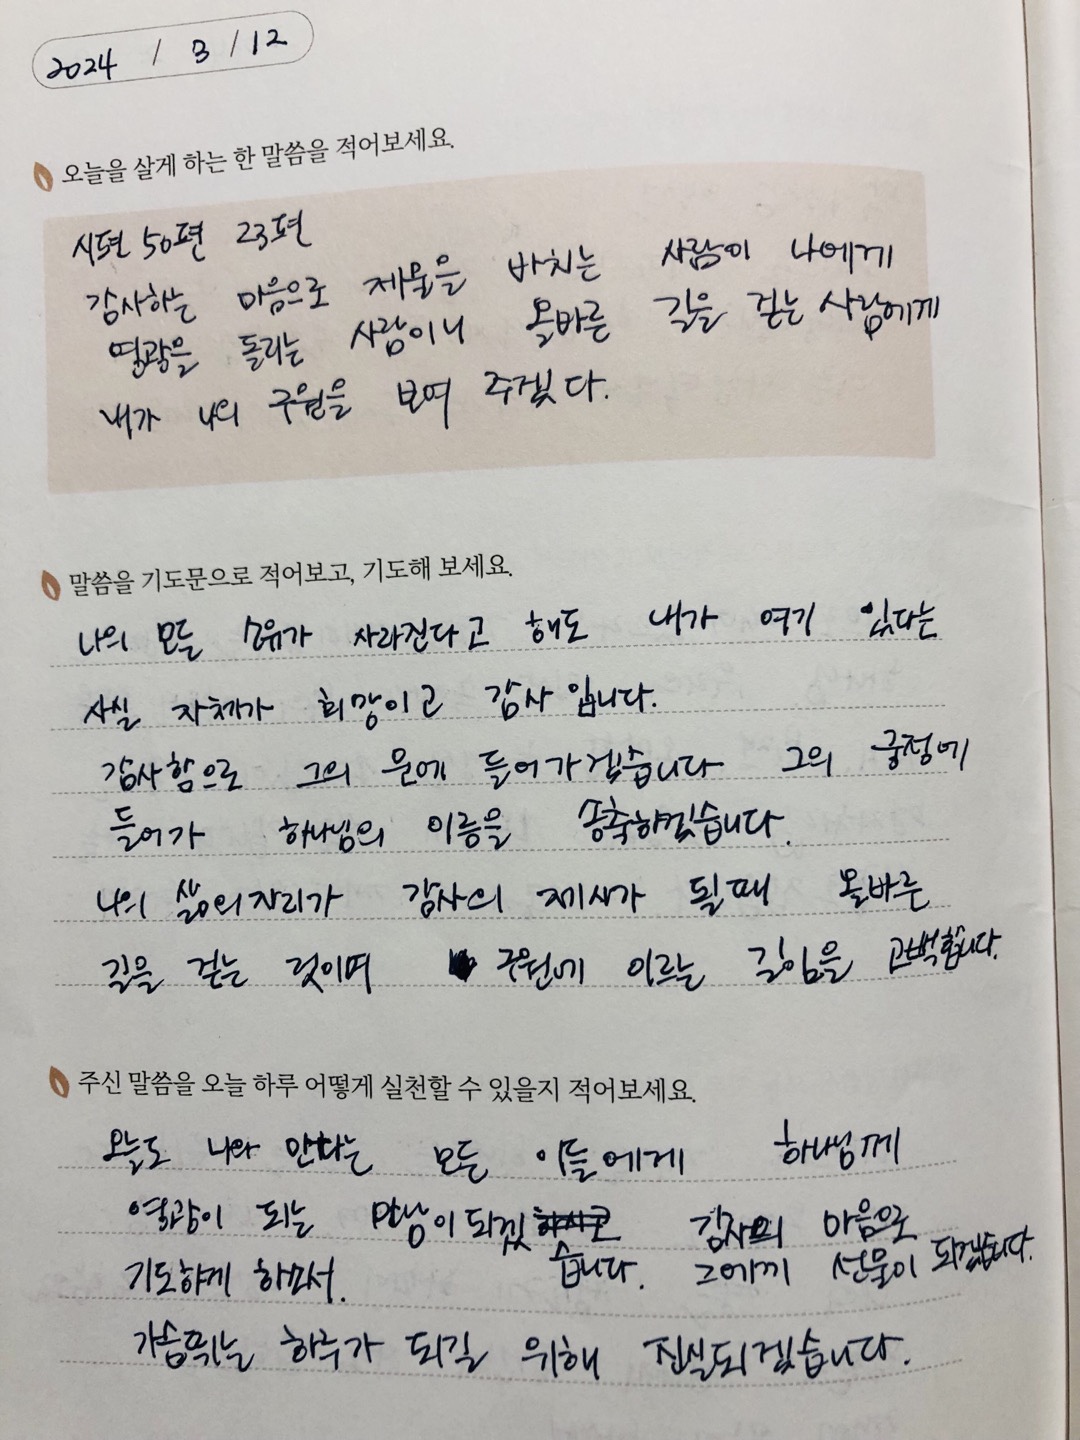 2024 / 3 / 12
오늘을 살게 하는 한 말씀을 적어보세요.
시편 50편 23편
감사하는 마음으로 제물을 바치는 사람이 나에게
영광을 돌리는 사람이니 올바른 길을 걷는 사람에게
내가 나의 구원을 보여 주겠다.
말씀을 기도문으로 적어보고, 기도해 보세요.
나의 모든 소유가 사라진다고 해도 내가 여기 있다는
사실 자체가 희망이고 감사입니다.
감사함으로 그의 문에 들어가겠습니다 그의 궁정에
들어가 하나님의 이름을 송축하겠습니다.
나의 삶의 자리가 감사의 제사가 될때 올바른
길을 걷는 것이며 구원에 이르는 길임을 고백합니다.
주신 말씀을 오늘 하루 어떻게 실천할 수 있을지 적어보세요.
오늘도 나와 만나는 모든 이들에게 하나님께
영광이 되는 만남이 되겠습니다. 감사의 마음으로
기도하게 하소서. 그에게 선물이 되겠습니다.
가슴뛰는 하루가 되길 위해 진실되겠습니다.